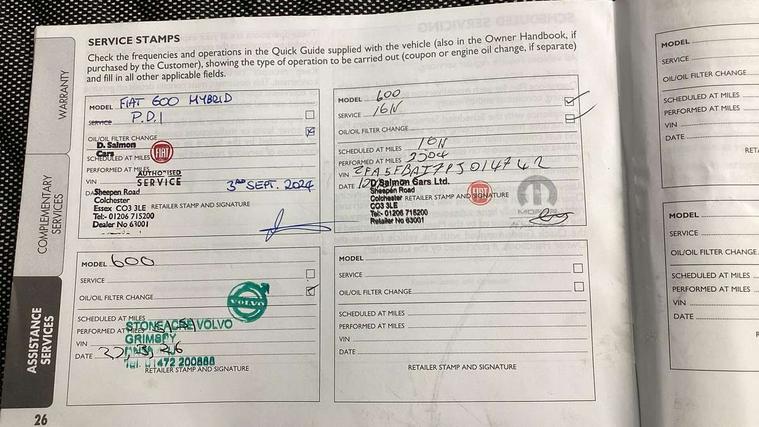 SERVICE STAMPS
Check the frequencies and operations in the Quick Guide supplied with the vehicle (also in the Owner Handbook, if
purchased by the Customer), showing the type of operation to be carried out (coupon or engine oil change, if separate)
and fill in all other applicable fields.
WARRANTY
COMPLEMENTARY
SERVICES
ASSISTANCE
SERVICES
MODEL FIAT 600 HYBRID
SERVICE P.D.I
OIL/OIL FILTER CHANGE
D. Salmon
Cars
SCHEDULED AT MILES
FIAT
PERFORMED AT MILES
AUTHORISED
SERVICE
VIN
DATE 3RD SEPT. 2024
Sheepen Road
Colchester
Essex CO3 3LE
RETAILER STAMP AND SIGNATURE
Tel:- 01206 715200
Dealer No 63001
MODEL 600
SERVICE
OIL/OIL FILTER CHANGE
SCHEDULED AT MILES
PERFORMED AT MILES
VIN
DATE
D Salmon Cars Ltd.
Sheepen Road
Colchester
CO3 3LE
Tel:- 01206 715200
Retailer No 63001
RETAILER STAMP AND SIGNATURE
FIAT
MODEL 600
SERVICE
OIL/OIL FILTER CHANGE
VOLVO
SCHEDULED AT MILES
PERFORMED AT MILES
STONEACRE VOLVO
GRIMSBY
VIN
DATE
Tel: 01472 200888
RETAILER STAMP AND SIGNATURE
MODEL
SERVICE
OIL/OIL FILTER CHANGE
SCHEDULED AT MILES
PERFORMED AT MILES
VIN
DATE
RETAILER STAMP AND SIGNATURE
26
MODEL
SERVICE
OIL/OIL FILTER CHANGE
SCHEDULED AT MILES
PERFORMED AT MILES
VIN
DATE
MODEL
SERVICE
OIL/OIL FILTER CHANGE
SCHEDULED AT MILES
PERFORMED AT MILES
VIN
DATE